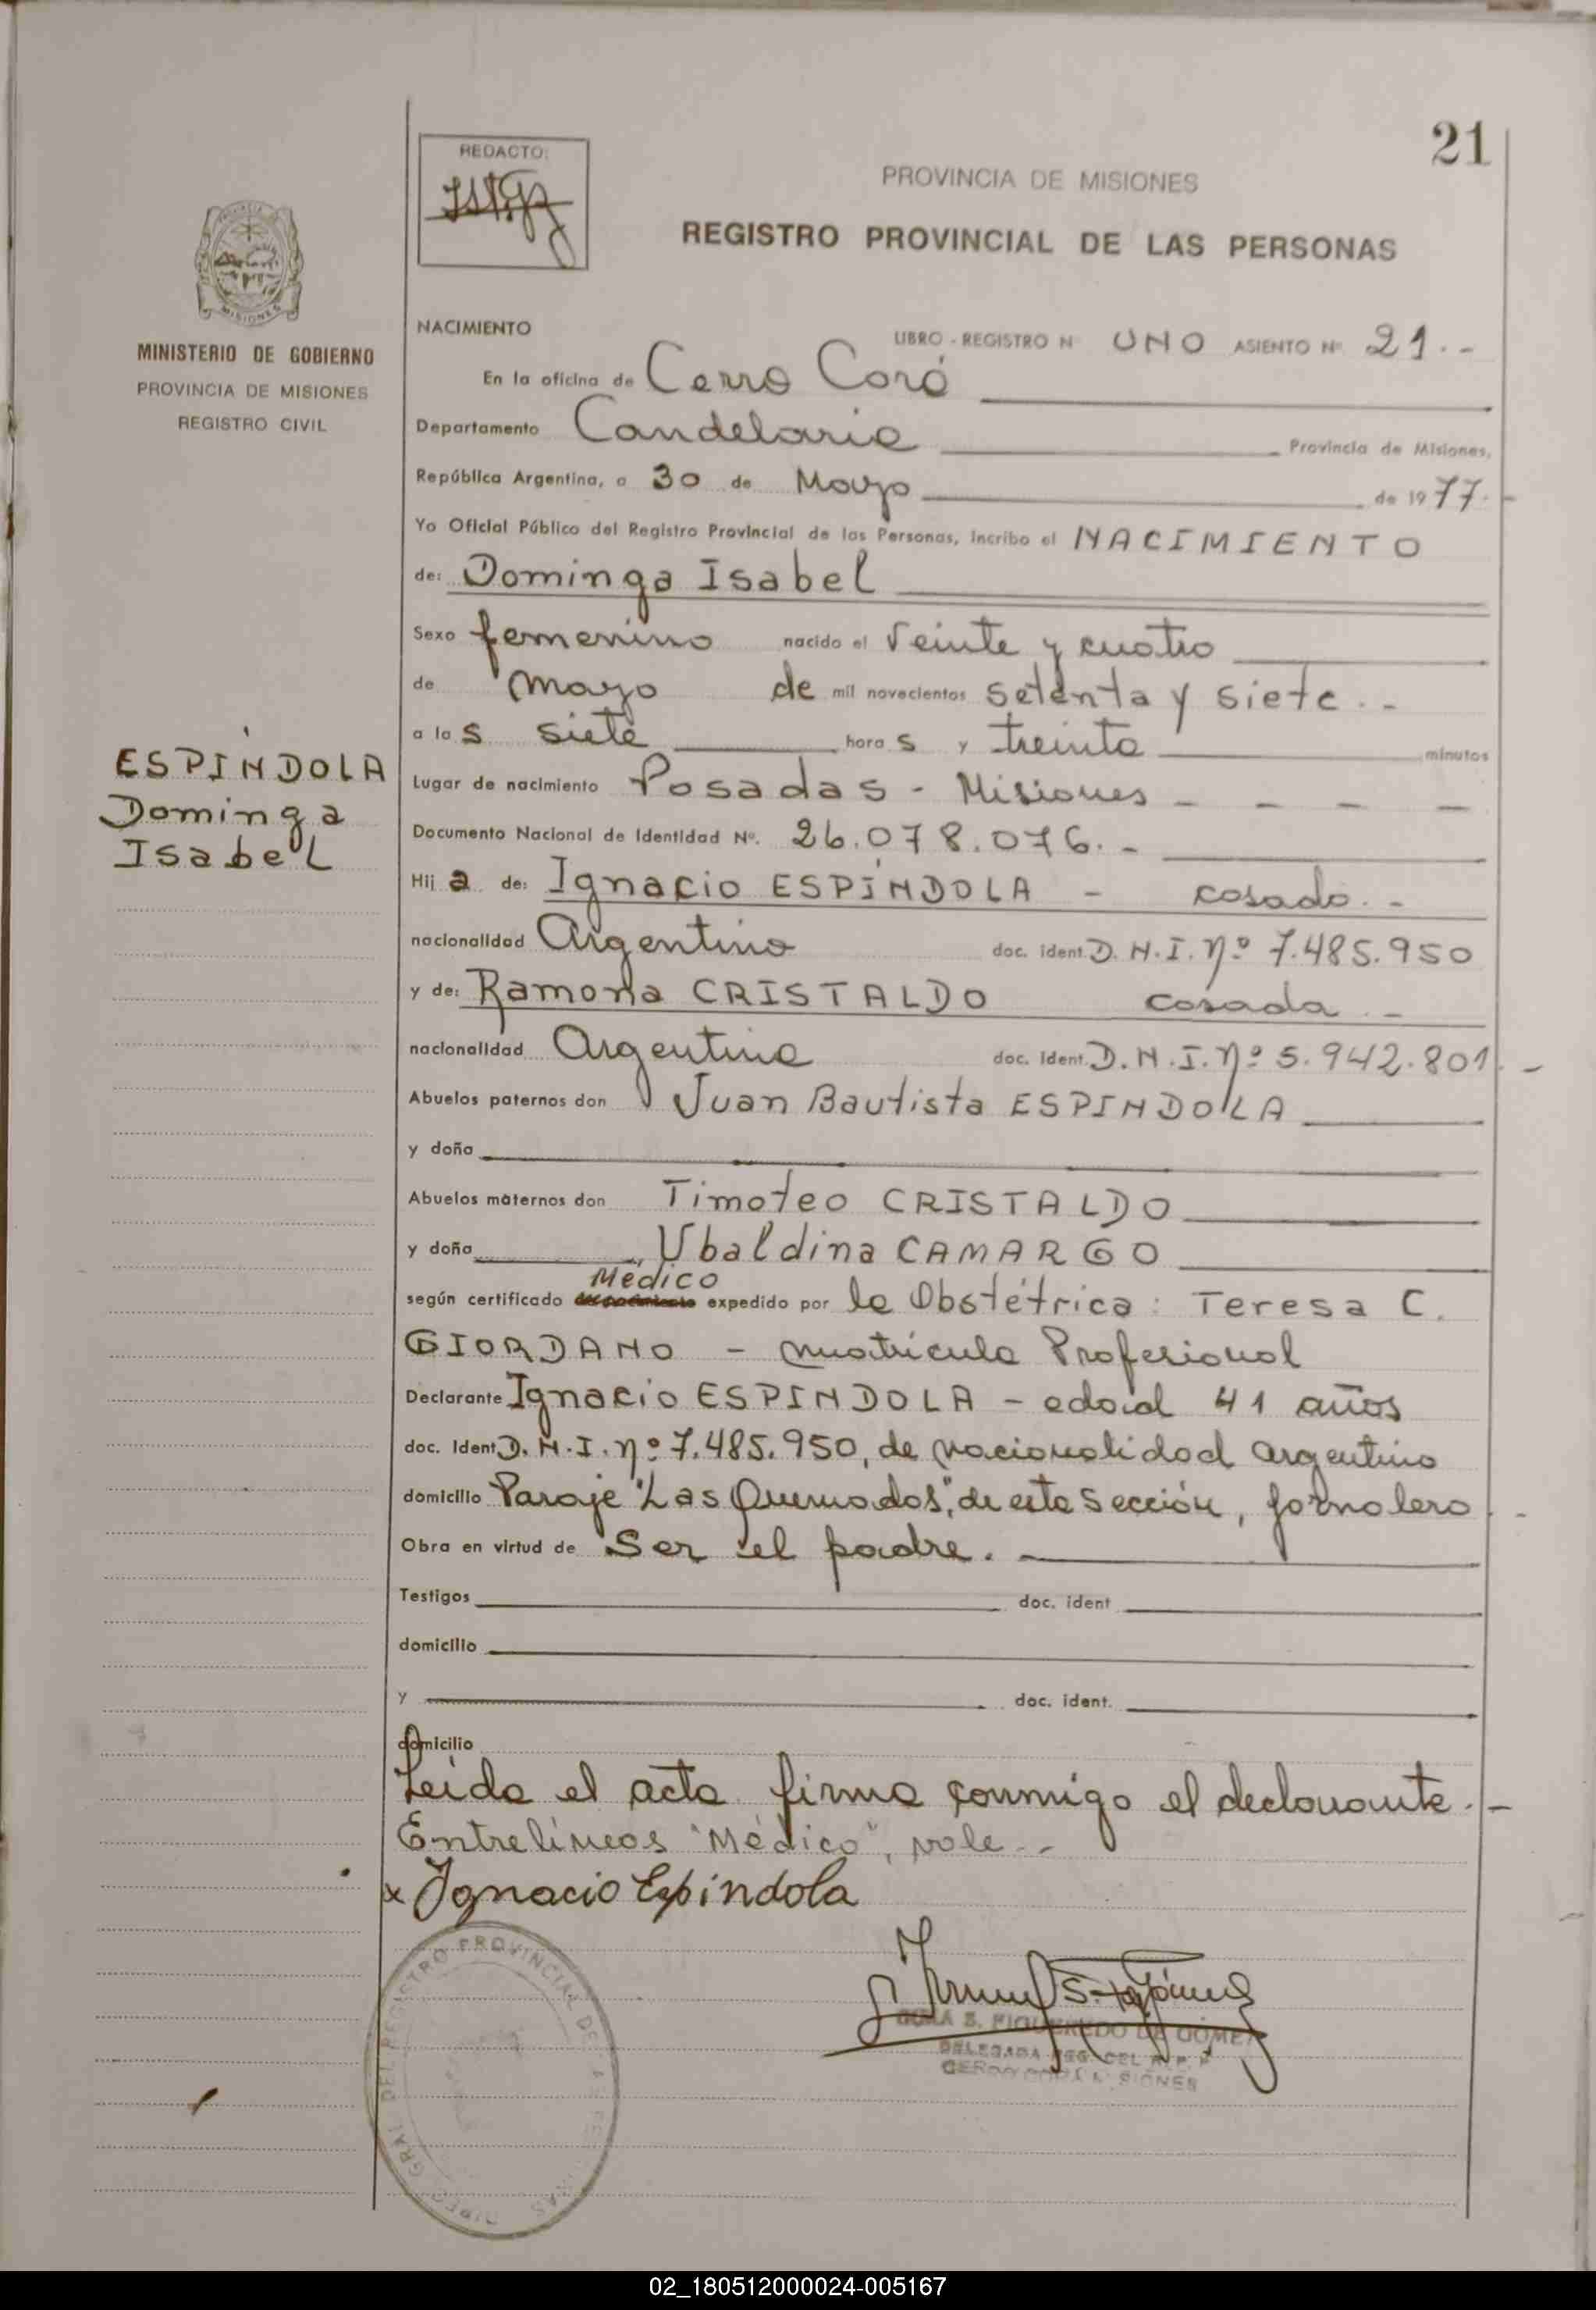 21
REDACTO:
PROVINCIA DE MISIONES
REGISTRO PROVINCIAL DE LAS PERSONAS
MINISTERIO DE GOBIERNO
PROVINCIA DE MISIONES
REGISTRO CIVIL
ESPÍNDOLA
Dominga
Isabel
NACIMIENTO LIBRO - REGISTRO Nº UNO ASIENTO Nº 21.-
En la oficina de Cerro Corá
Departamento Candelaria Provincia de Misiones,
República Argentina, a 30 de Mayo de 1977.-
Yo Oficial Público del Registro Provincial de las Personas, incribo el NACIMIENTO
de: Dominga Isabel
Sexo femenino nacido el Veinte y cuatro
de mayo de mil novecientos setenta y siete.-
a las siete horas y treinta minutos
Lugar de nacimiento Posadas - Misiones - - - -
Documento Nacional de Identidad Nº. 26.078.076.-
Hija de: Ignacio ESPÍNDOLA - casado.-
nacionalidad Argentino doc. ident. D.N.I. Nº 7.485.950
y de: Ramona CRISTALDO casada.-
nacionalidad Argentina doc. ident. D.N.I. Nº 5.942.801.-
Abuelos paternos don Juan Bautista ESPINDOLA
y doña
Abuelos maternos don Timoteo CRISTALDO
y doña Ubaldina CAMARGO
Médico
según certificado expedido por la Obstétrica: Teresa C.
GIORDANO - matrícula Profesional
Declarante Ignacio ESPINDOLA - edad 41 años
doc. Ident D.N.I. nº 7.485.950, de nacionalidad argentino
domicilio Paraje "Las Quemados", de esta Sección, jornalero.-
Obra en virtud de Ser el padre.-
Testigos doc. ident
domicilio
y doc. ident.
domicilio
Leida el acta firma conmigo el declarante.-
Entrelíneas "Médico", vale.-
x Ignacio Espíndola
S. FIGUEREDO DE GOMEZ
DELEGADA REG. DEL R.P.P.
CERRO CORÁ MISIONES
DIREC. GRAL DEL REGISTRO PROVINCIAL DE LAS PERSONAS
02_180512000024-005167